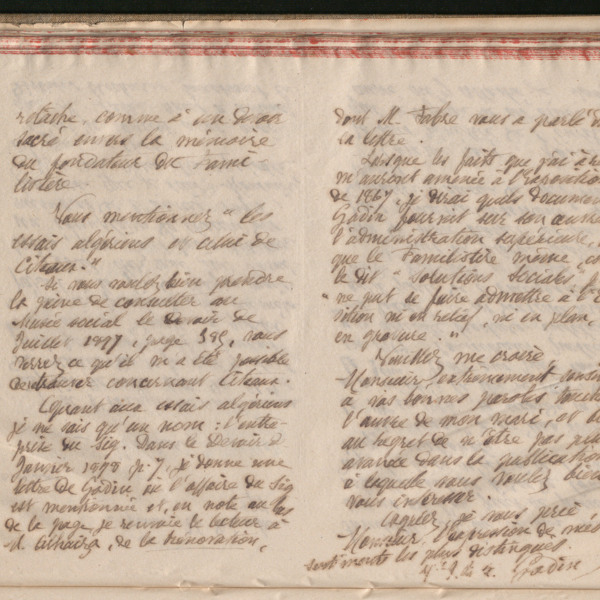 rattache, comme à un devoir
sacré envers la mémoire
du fondateur du Fami-
listère.
Vous mentionnez "les
essais algériens et celui de
Citeaux."
Si vous voulez bien prendre
la peine de consulter au
Musée social le Devoir de
Juillet 1897, page 395, vous
verrez ce qu'il m'a été possible
de trouver concernant Citeaux.
Quant aux essais algériens
je ne sais qu'un nom : l'entre-
prise du Sig. Dans le Devoir de
Janvier 1898 p. 7, je donne une
lettre de Godin où l'affaire du Sig
est mentionnée et, en note au bas
de la page, je renvoie le lecteur à
M. de la Rénovation,
dont M. Fabre vous a parlé
sa lettre.
Lorsque les faits que j'ai à
m'auront amenée à l'Exposition
de 1867, je dirai quels
Godin fournit sur son œuvre
l'administration supérieure,
que le Familistère même,
le dit "Solutions sociales"
"ne put se faire admettre à
ni en relief, ni en plan,
en gravure."
Veuillez me croire,
Monsieur, extrêmement
à vos bonnes paroles
l'œuvre de mon mari, et
au regret de n'être pas plus
avancée dans la publication
à laquelle vous voulez bien
vous intéresser.
Agréez, je vous prie
Monsieur, l'expression de mes
sentiments les plus distingués
Godin